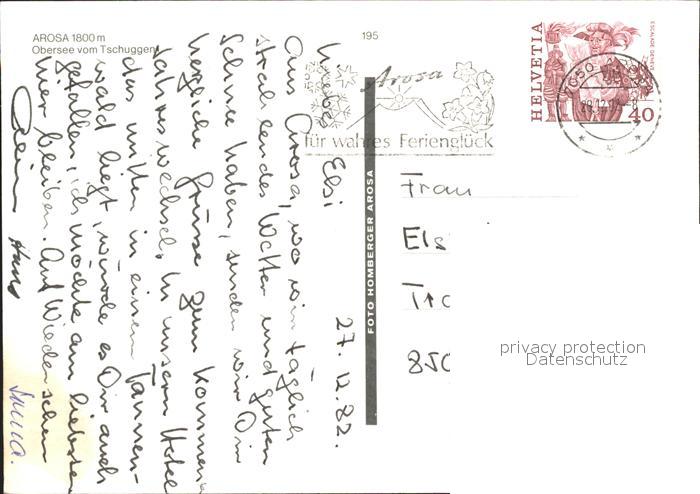 AROSA 1800 m
Obersee vom Tschuggen
195
Arosa
für wahres Ferienglück
HELVETIA
ESCALADE GENÈVE
40
7050
FOTO HOMBERGER AROSA
27.12.82.
Liebe Elsi
Aus Arosa, wo wir täglich
strahlendes Wetter und guten
Schnee haben, senden wir Dir
herzliche Grüsse zum kommenden
Jahreswechsel. In unserem Hotel
das mitten in einem Tannen-
wald liegt, würde es Dir auch
gefallen, ich möchte am liebsten
hier bleiben. Auf Wiedersehen
Dein Hans
Frau
Els
850
privacy protection
Datenschutz